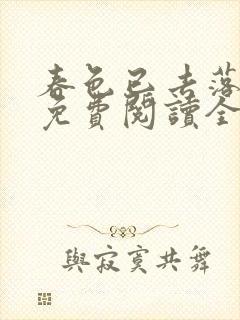 春色已去落
免費閱讀全
與寂寞共舞